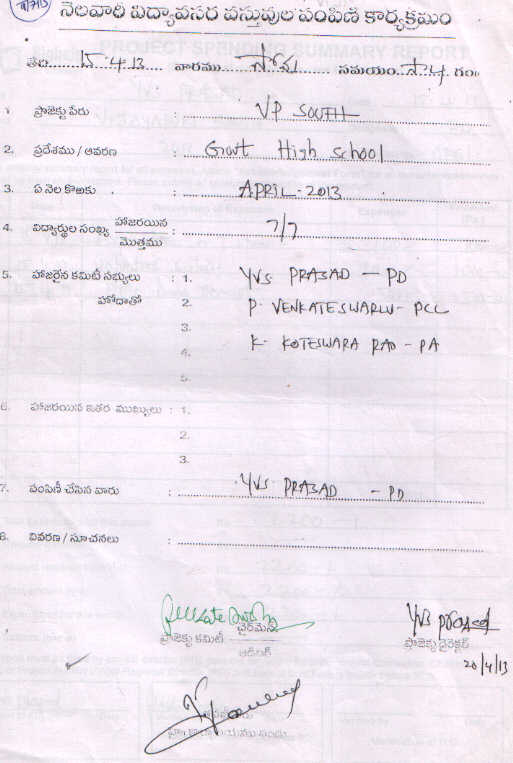 నెలవారి విద్యావసర వస్తువుల పంపిణి కార్యక్రమం
తేది 15.4.13 వారము సోమ సమయం సా 4 గం
1. ప్రాజెక్టు పేరు : VP SOUTH
2. ప్రదేశము / ఆవరణ : Govt High School
3. ఏ నెల కొఱకు : APRIL-2013
4. విద్యార్థుల సంఖ్య హాజరయిన / మొత్తము : 7/7
5. హాజరైన కమిటీ సభ్యులు : 1. YVS PRASAD - PD
హోదాతో 2. P. VENKATESWARLU - PCC
3. K. KOTESWARA RAO - PA
4.
5.
6. హాజరయిన ఇతర ముఖ్యులు : 1.
2.
3.
7. పంపిణీ చేసిన వారు : YVS PRASAD - PD
8. వివరణ / సూచనలు :
చైర్మెన్
ప్రాజెక్టు కమిటీ
ఆడిటింగ్
YVS Prasad
ప్రాజెక్టు డైరెక్టర్
20/4/13